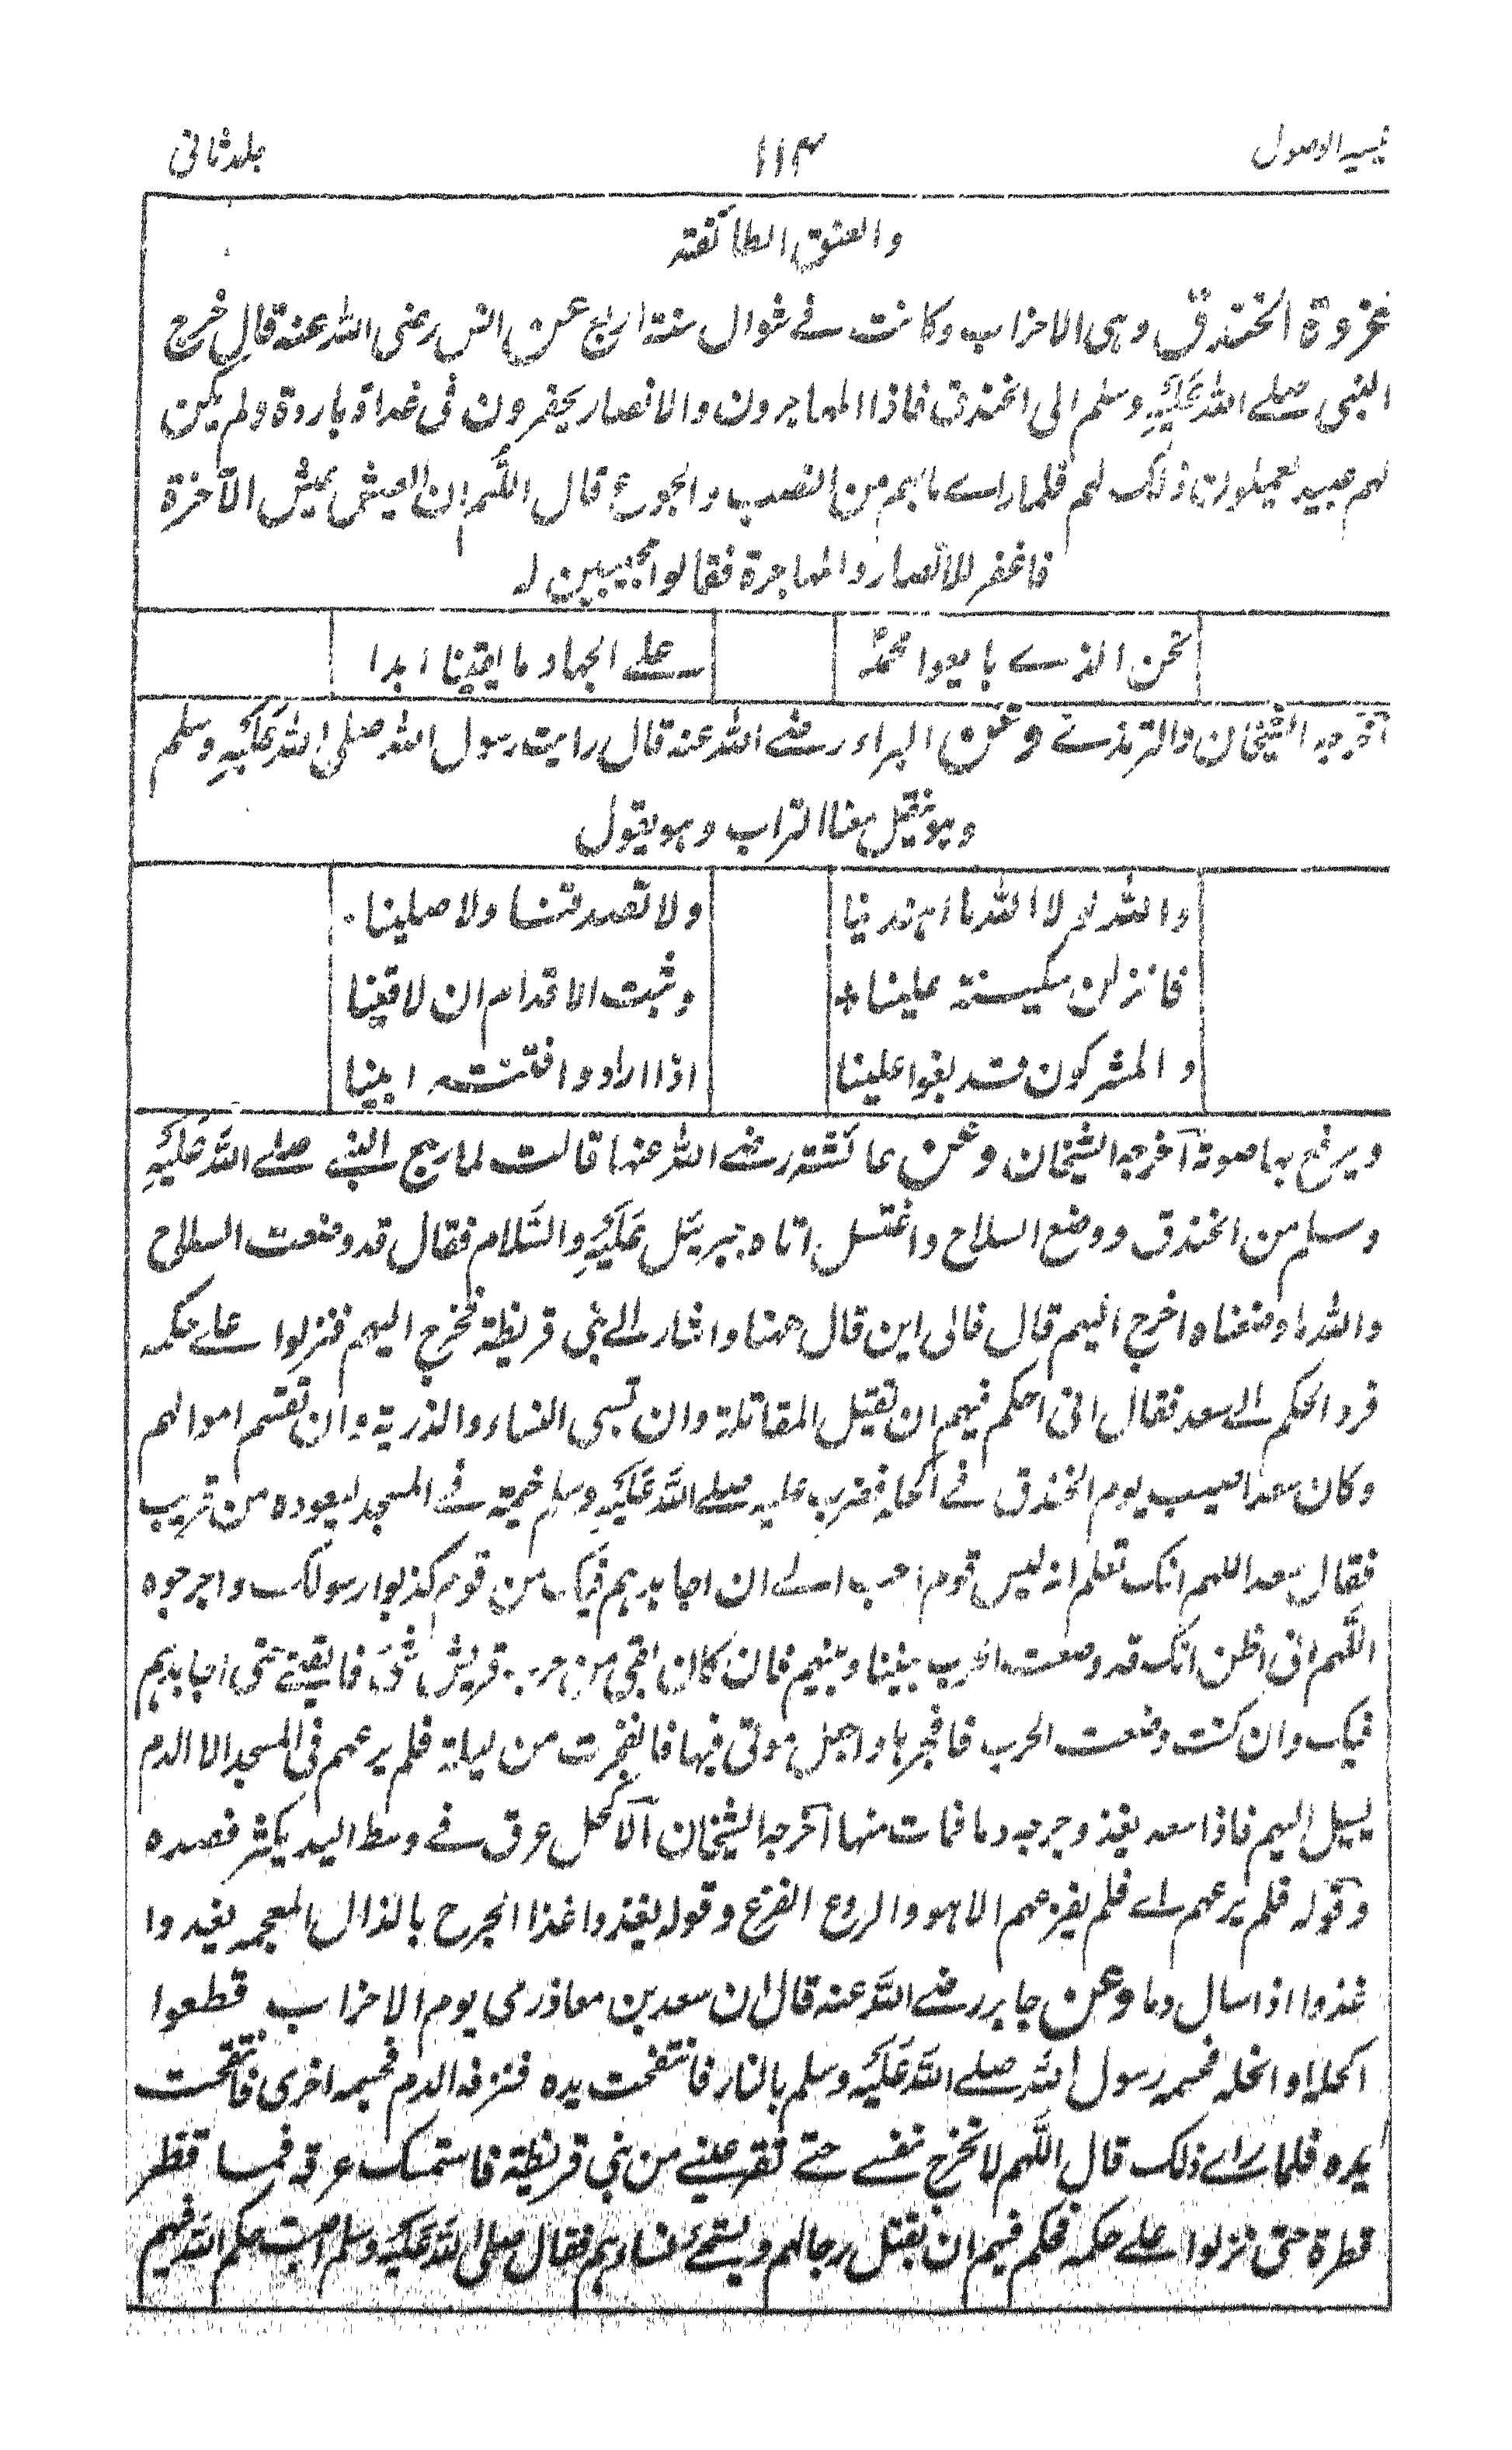 تيسير الوصول
۱۱۴
جلد ثانی
والعنق الطائفة
غزوة الخندق وهي الاحزاب وكانت في شوال سنة اربع عن انس رضى الله عنه قال خرج
النبي صلے الله عَلَيْهِ وسلم الى الخندق فاذا المهاجرون والانصار يحفرون فى غداة باردة ولم يكن
لهم عبيد يعملون ذلك لهم فلما راے ما بهم من النصب والجوع قال اللّٰهم ان العيش عيش الآخرة
فاغفر للانصار والمهاجرة فقالوا مجيبين له
نحن الذے بايعوا محمدًا
علے الجهاد ما بقينا ابدا
آخرجه الشيخان والترمذے وعن البراء رضے الله عنه قال رايت رسول الله صلى الله عَلَيْهِ وسلم
وهو ينقل معنا التراب وهو يقول
والله لو لا الله ما اهتدينا
ولا تصدقنا ولا صلينا
فانزلن سكينة علينا
وثبت الاقدام ان لاقينا
والمشركون قد بغوا علينا
اذا ارادوا فتنة ابينا
ويرفع بها صوته آخرجه الشيخان وعن عائشة رضے الله عنها قالت لما رجع النبے صلے اللّٰه عَلَيْهِ
وسلم من الخندق ووضع السلاح واغتسل اتاه جبريئل عَلَيْهِ والسَّلام فقال قد وضعت السلاح
والله ما وضعناه اخرج اليهم قال فالى اين قال ههنا واشار الے بنى قريظة فخرج اليهم فنزلوا علے حكمه
فرد الحكم الے سعد فقال انى احكم فيهم ان تقتل المقاتلة وان تسبى النساء والذرية وان تقسم اموالهم
وكان سعد اصيب يوم الخندق فے اكحله فضرب عليه صلے اللّٰه عَلَيْهِ وسلم خيمة فے المسجد ليعوده من قريب
فقال سعد اللهم انك تعلم انه ليس قوم احب الے ان اجاهدهم فيك من قوم كذبوا رسولك واخرجوه
اللّٰهم انى اظن انك قد وضعت الحرب بيننا وبينهم فان كان بقى من حرب قريش شئ فابقنے حتى اجاهدهم
فيك وان كنت وضعت الحرب فافجرها واجعل موتى فيها فانفجرت من ليلته فلم يرعهم فى المسجد الا الدم
يسيل اليهم فاذا سعد يغذ وجرحه دما فمات منها آخرجه الشيخان آلاكحل عرق فے وسط اليد يكثر فصده
وقوله فلم يرعهم اے فلم يفزعهم الا هو والروع الفزع وقوله يغذوا غذا الجرح بالذال المعجمه يغدوا
غذوا اذا سال دما وعن جابر رضے اللّٰه عنه قال ان سعد بن معاذ رمى يوم الاحزاب قطعوا
اكحله او انحله فحسمه رسول اللّٰه صلے اللّٰه عَلَيْهِ وسلم بالنار فانتفخت يده فنزفه الدم فحسمه اخرى فانتفخت
يده فلما راے ذلك قال اللّٰهم لا تخرج نفسے حتے تقر عينے من بنى قريظة فاستمسك عرقه فما قطر
قطرة حتى نزلوا علے حكمه فحكم فيهم ان يقتل رجالهم ويستحے نساؤهم فقال صلى اللّٰه عَلَيْهِ وسلم اصبت حكم اللّٰه فيهم